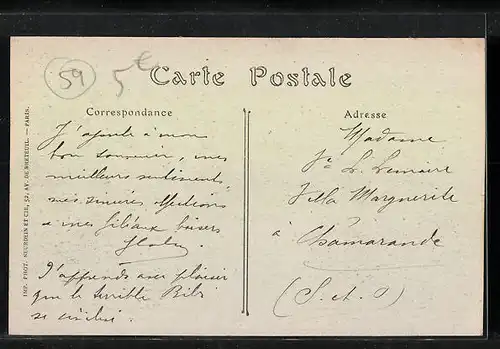 59
5€
Carte Postale
Correspondance
Adresse
J'ajoute à mon
bon souvenir, mes
meilleurs sentiments
mes sincères affections
à mes filiaux baisers
J'apprends avec plaisir
que le terrible Bibi
se
Madame
Ve L. Lemaire
Villa Marguerite
à Chamarande
(S. et O)
IMP. PHOT. NEURDEIN ET CIE, 52, AV. DE BRETEUIL. — PARIS.